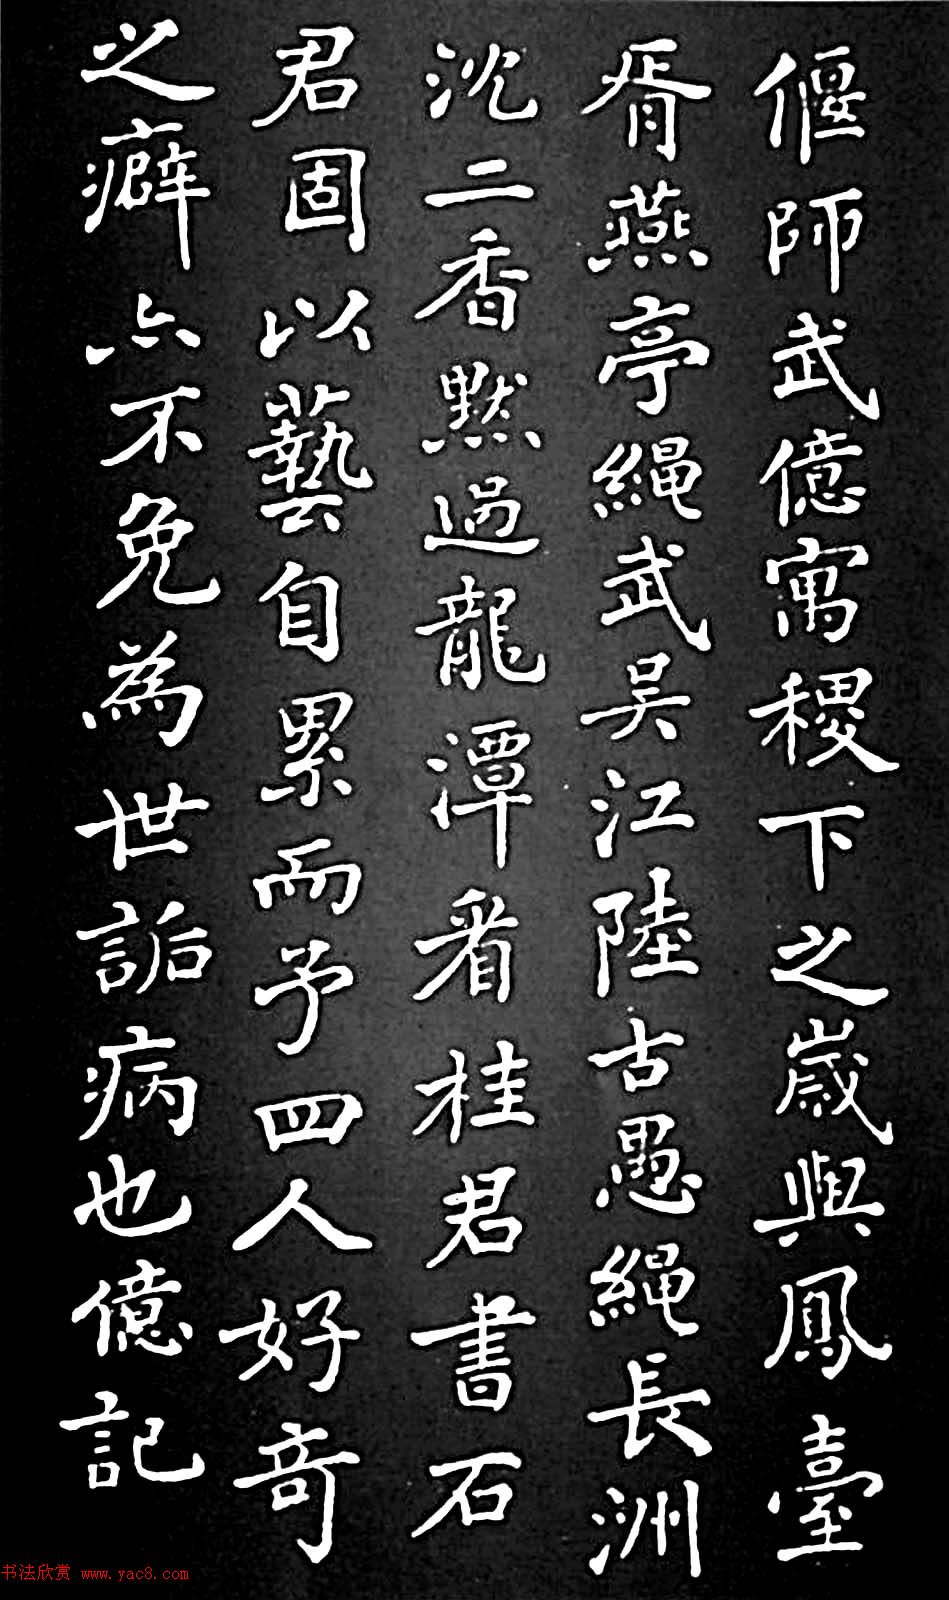 偃師武億寓稷下之歲與鳳臺
胥燕亭繩武吴江陸古愚繩長洲
沈二香默過龍潭看桂君書石
君固以藝自累而予四人好奇
之癖亦不免為世詬病也億記
书法欣赏 www.yac8.com